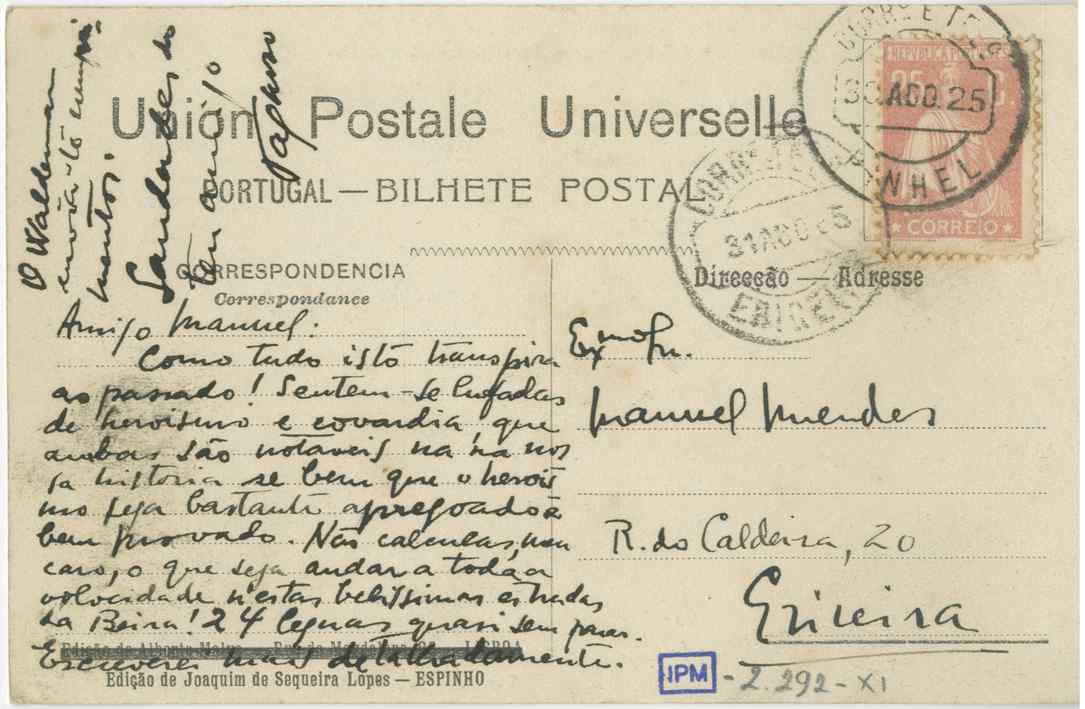 O Waldemar
envia-te cumpri-
mentos.
Saudades do
teu amigo
União Postale Universelle
PORTUGAL — BILHETE POSTAL
CORRESPONDENCIA
Correspondance
Direcção — Adresse
REPUBLICA PORTUGUESA
25 C.
CORREIO
30 AGO. 25
PINHEL
CORREIO
31 AGO 25
ERICEIRA
Amigo Manuel:
Como tudo isto transpira
ao passado! Sentem-se lufadas
de heroismo e covardia, que
ambas são notaveis na na nos
sa historia se bem que o herois
mo seja bastante apregoado e
bem provado. Não calculas, meu
caro, o que seja andar a toda a
velocidade n'estas belissimas estradas
da Beira! 24 leguas quasi sem parar.
Escreverei mais detalhadamente.
Edição de Joaquim de Sequeira Lopes — ESPINHO
Exmo Sr.
Manuel Mendes
R. do Caldeira, 20
Ericeira
IPM - 2.292-XI